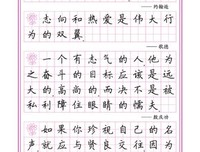 ——约翰逊
志向和热爱是伟大行
为的双翼
——歌德
一个有志气的人他为
之奋斗的目标应该是远
大的高尚的而决不是被
私利障住眼睛的懦夫
——敖成功
如果你珍视自己的名
声就应与贤良交往因为